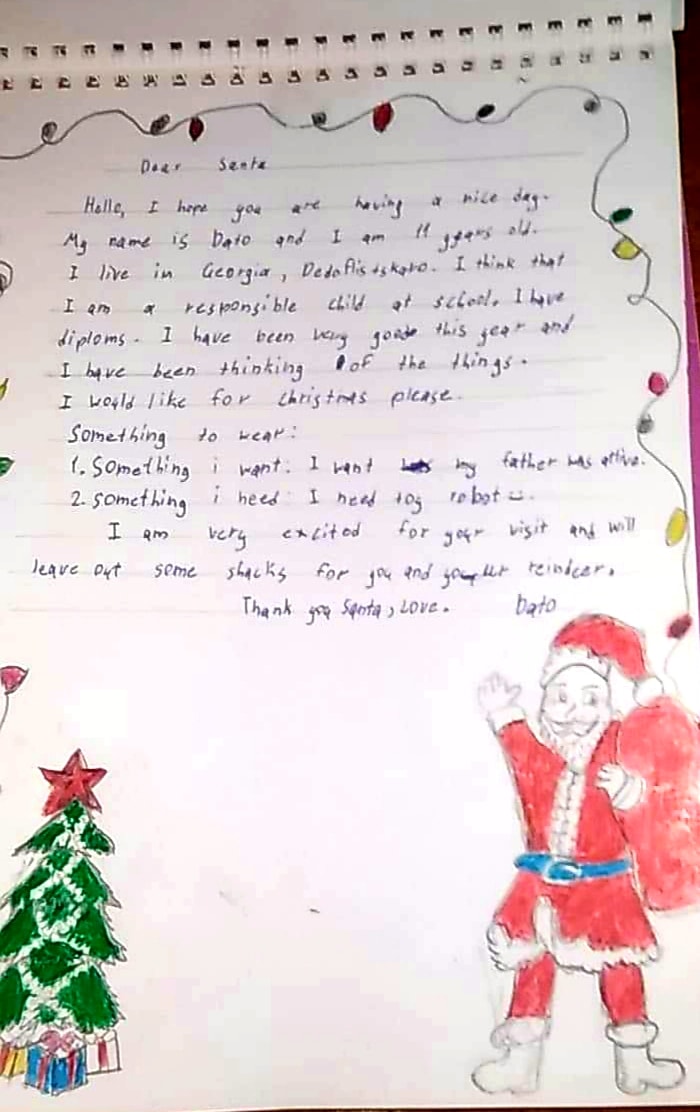 Dear Santa
Hello, I hope you are having a nice day.
My name is Dato and I am 11 years old.
I live in Georgia, Dedoflistskaro. I think that
I am a responsible child at school. I have
diploms. I have been very goode this year and
I have been thinking of the things.
I would like for christmas please.
Something to wear:
1. Something i want: I want my father was allive.
2. something i need: I need toy robot
I am very excited for your visit and will
leave out some snacks for you and your reindeer.
Thank you Santa, Love. Dato